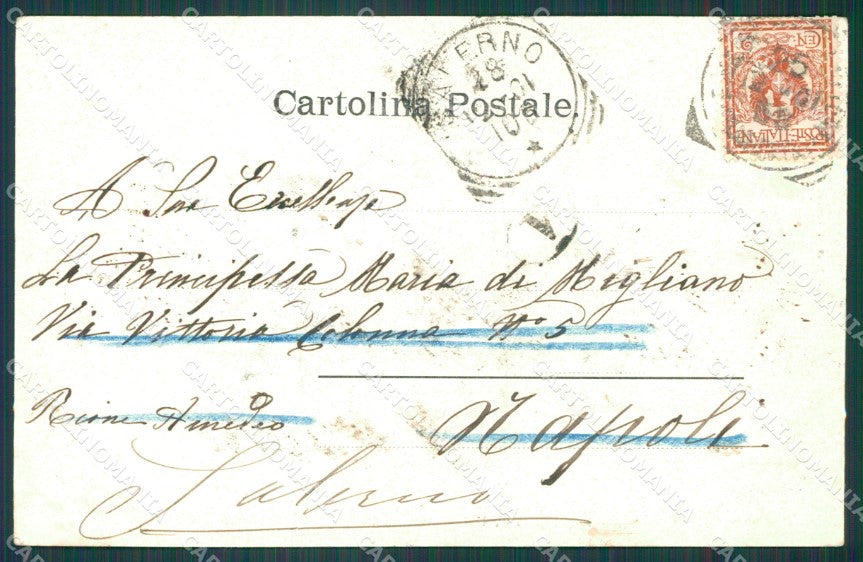 Cartolina Postale.
SALERNO
28
01
10
CEN. 2
POSTE ITALIANE
A Sua Eccellenza
La Principessa Maria di Migliano
Via Vittoria Colonna No 5
Rione Amedeo
Napoli
Salerno
CARTOLINOMANIA